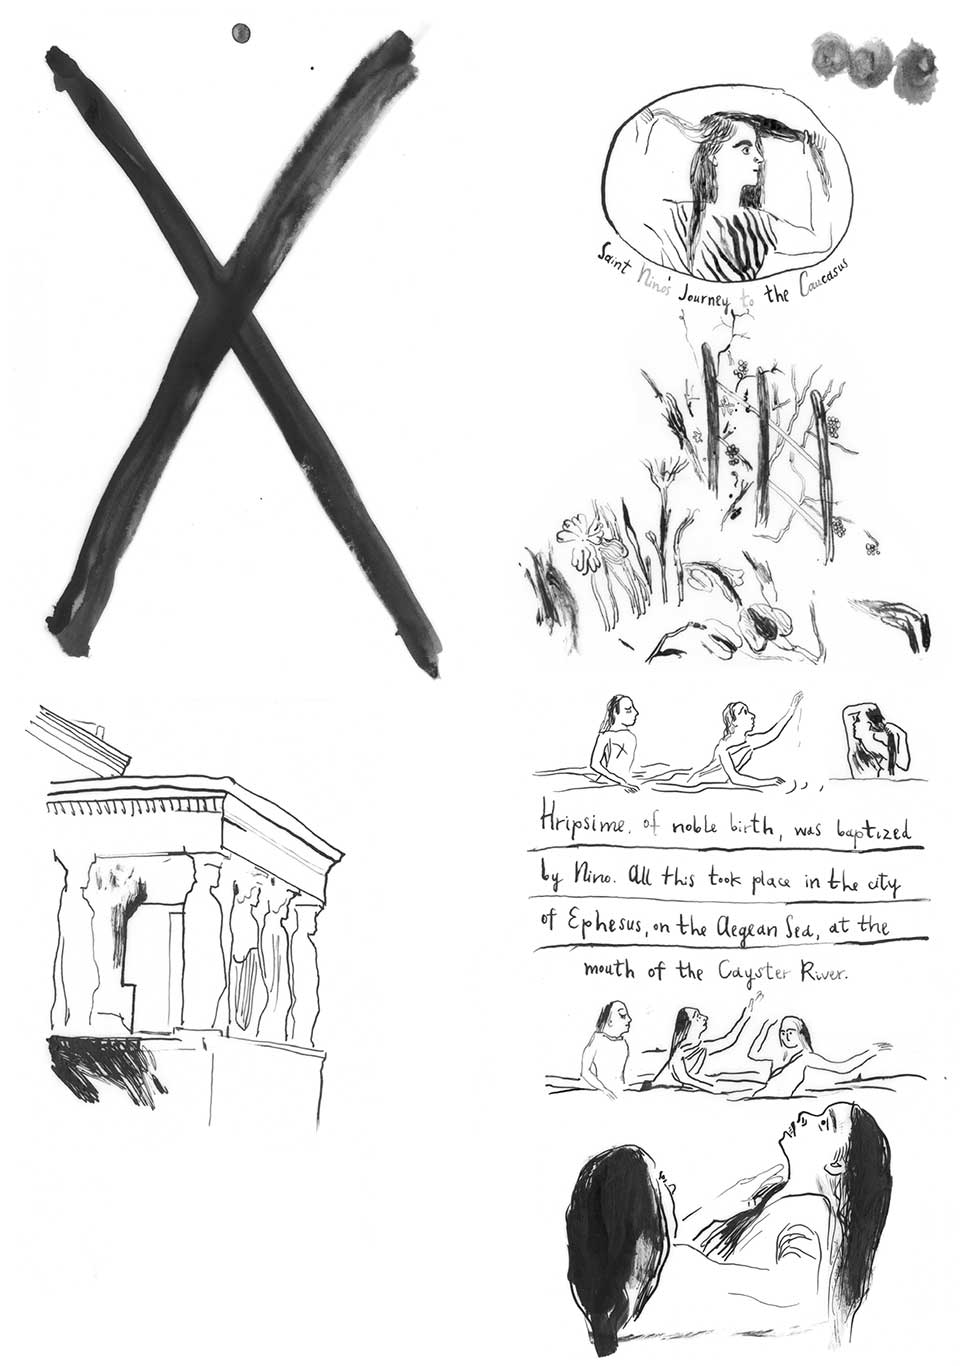 Saint Nino's Journey to the Caucasus
Hripsime, of noble birth, was baptized
by Nino. All this took place in the city
of Ephesus, on the Aegean Sea, at the
mouth of the Cayster River.